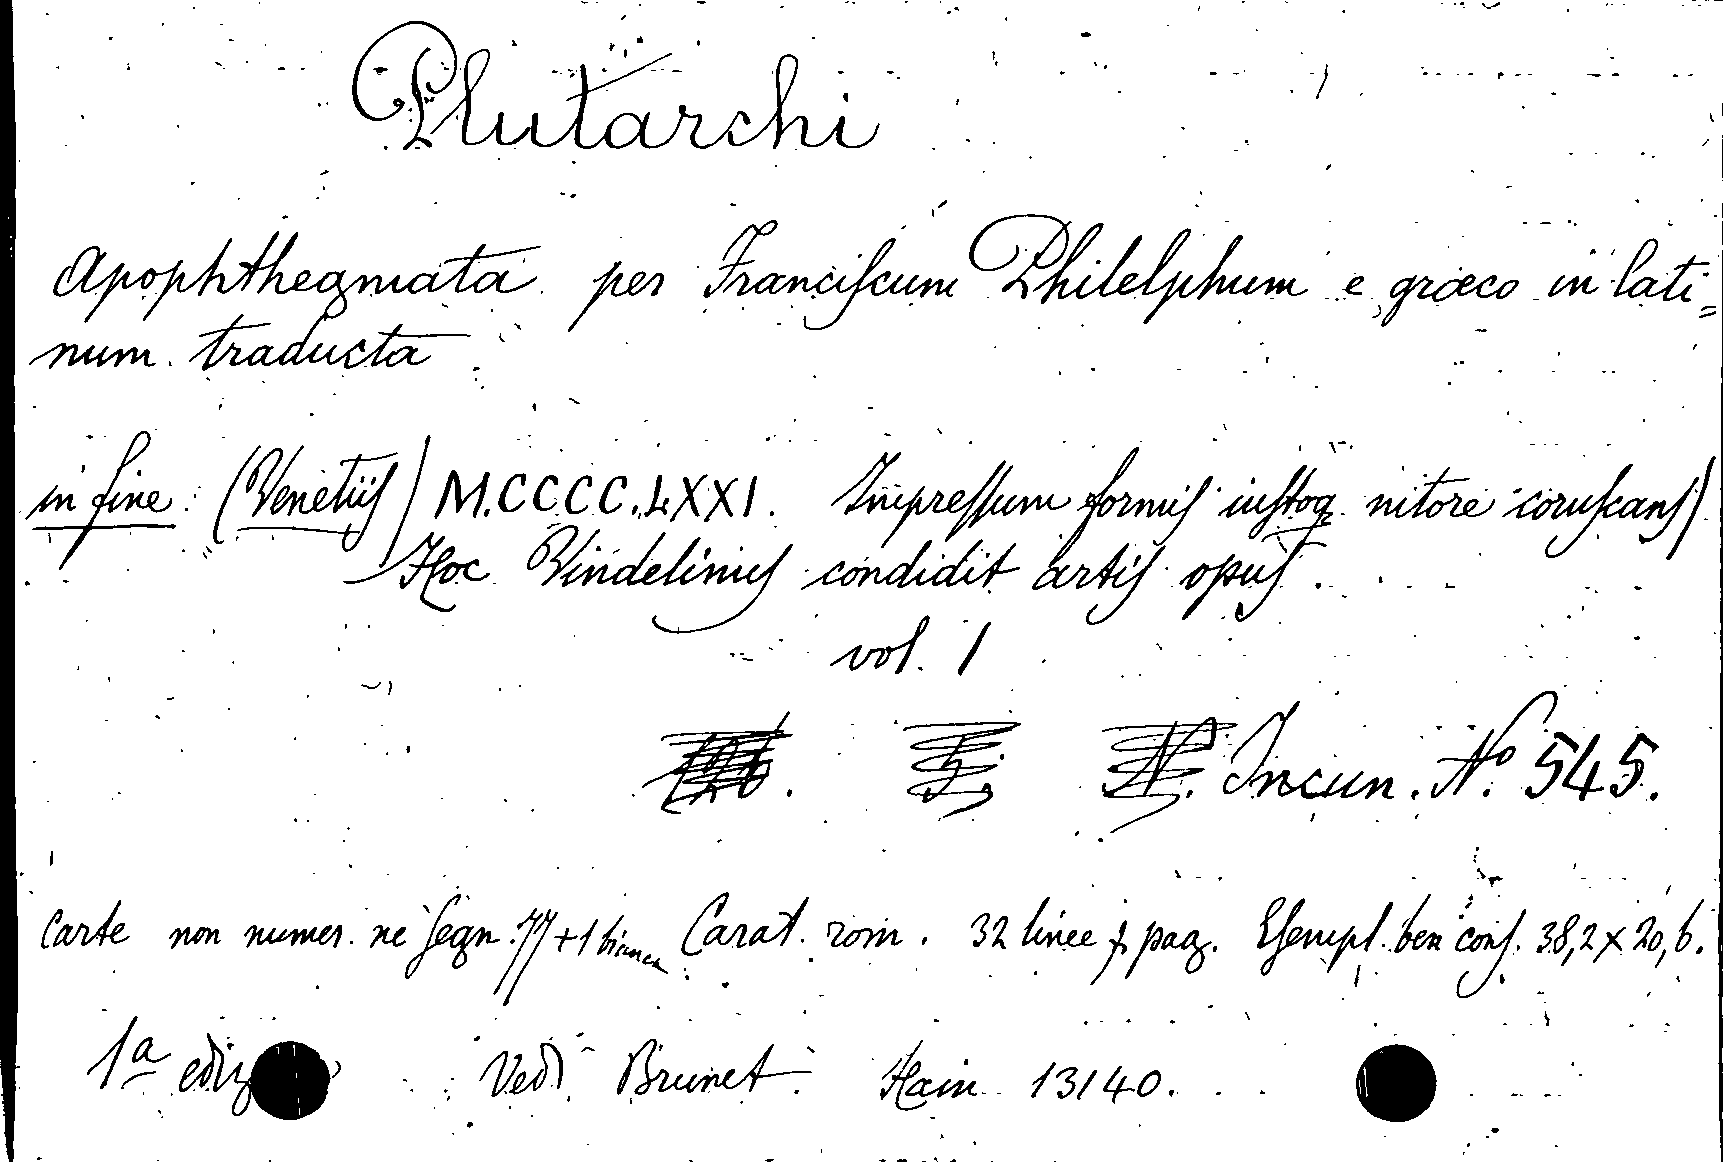 Plutarchi
Apophthegmata per Franciscum Philelphum e græco in lati=
num traducta
in fine: (Venetiis) M.CCCC.LXXI. Impressum formis iustoq nitore coruscans/
Hoc Vindelinus condidit artis opus.
vol. 1
Incun. Nº 545.
Carte non numer. nè segn. 77 + 1 bianca Carat. rom. 32 linee p pag. Esempl. ben cons. 38,2 x 20,6.
1ª ediz Vedi Brunet. Hain 13140.